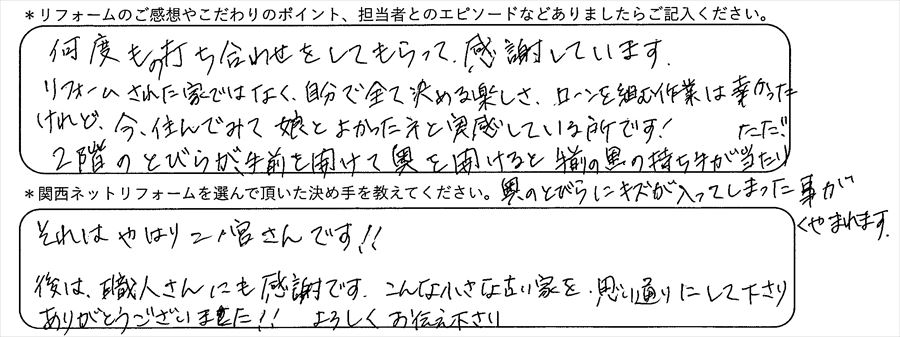 ＊リフォームのご感想やこだわりのポイント、担当者とのエピソードなどありましたらご記入ください。
何度もの打ち合わせをしてもらって、感謝しています。
リフォームされた家ではなく、自分で全て決める楽しさ、ローンを組む作業は辛かった
けれど、今、住んでみて娘とよかったネと実感している所です! ただ!
2階のとびらが、手前を開けて奥を開けると手前の黒の持ち手が当たり
＊関西ネットリフォームを選んで頂いた決め手を教えてください。
奥のとびらにキズが入ってしまった事が
くやまれます。
それはやはり二ノ宮さんです!!
後は、職人さんにも感謝です。こんな小さな古い家を、思い通りにして下さり
ありがとうございました!! よろしくお伝え下さい